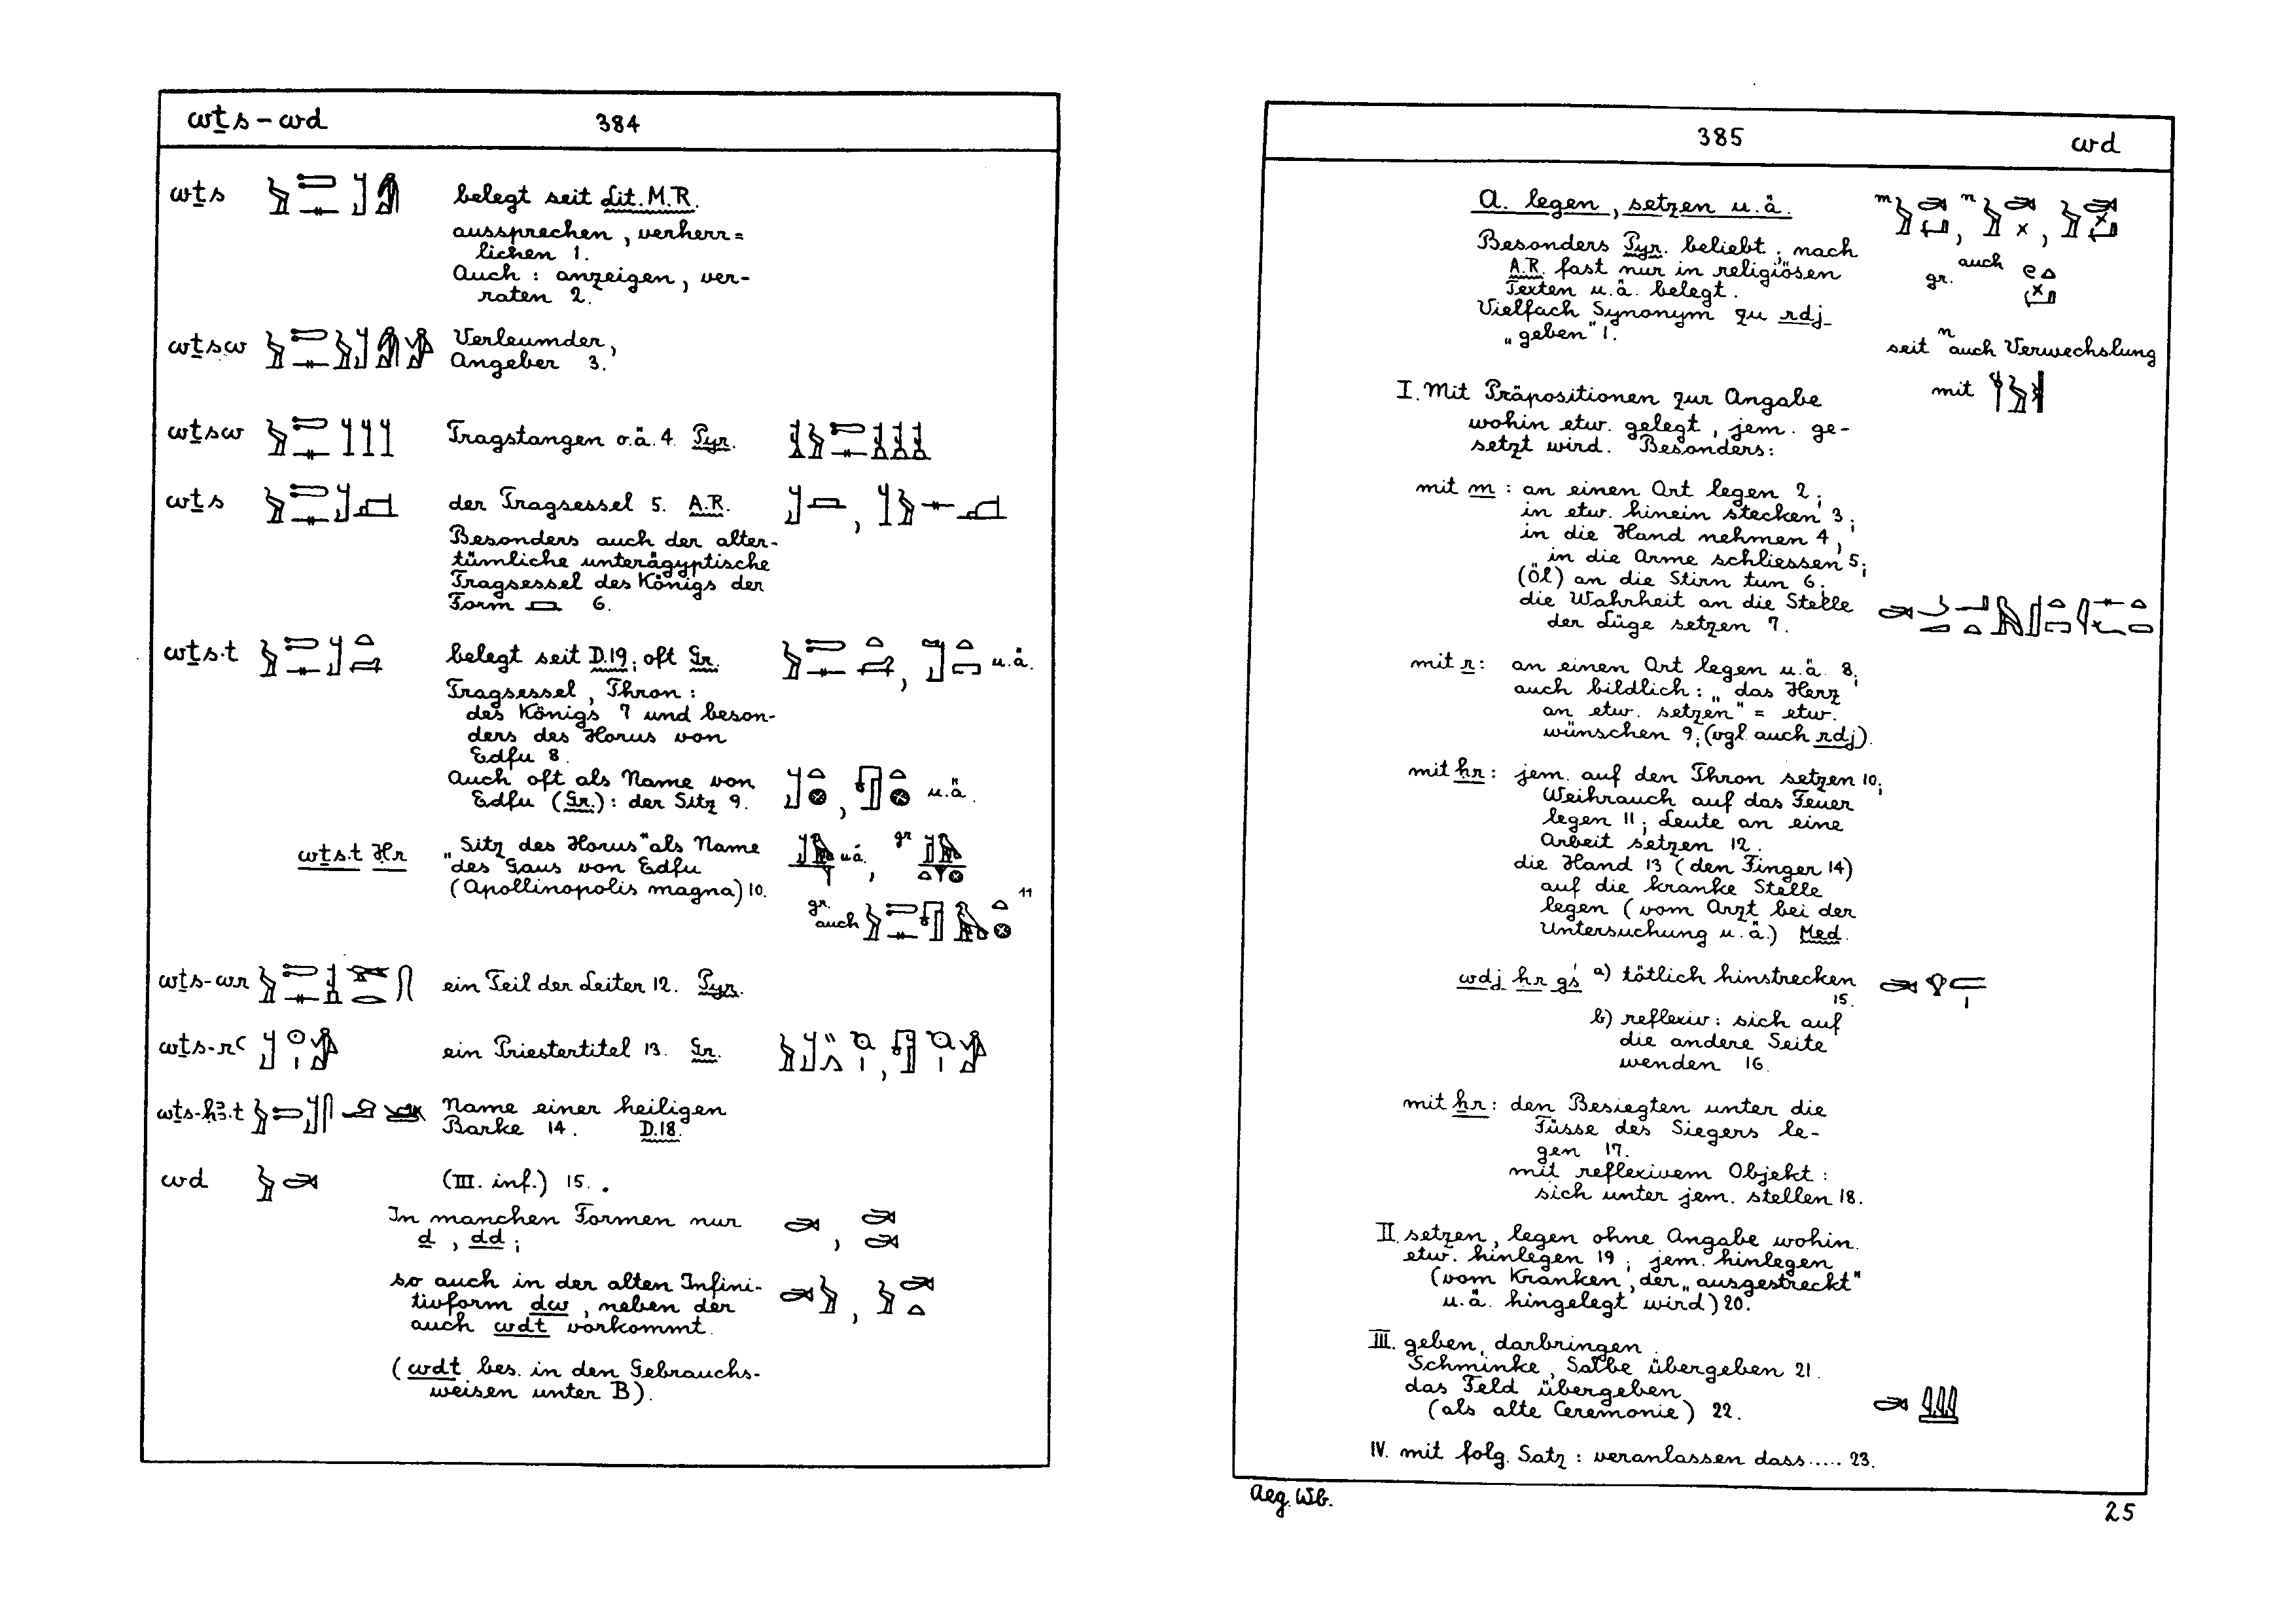 wṯs – wd 384
wṯs belegt seit Lit. M.R.
aussprechen, verherr=
lichen 1.
Auch: anzeigen, ver-
raten 2.
wṯsw Verleumder,
Angeber 3.
wṯsw Tragstangen o.ä. 4. Pyr.
wṯs der Tragsessel 5. A.R.
Besonders auch der alter-
tümliche unterägyptische
Tragsessel des Königs der
Form 6.
wṯs.t belegt seit D.19; oft Gr. u.ä.
Tragsessel, Thron:
des Königs 7 und beson-
ders des Horus von
Edfu 8.
Auch oft als Name von
Edfu (Gr.): der Sitz 9. u.ä.
wṯs.t Ḥr „Sitz des Horus" als Name u.ä. gr
des Gaus von Edfu
(Apollinopolis magna) 10.
gr. auch 11
wṯs-wr ein Teil der Leiter 12. Pyr.
wṯs-rꜥ ein Priestertitel 13. Gr.
wṯs-ḥꜣ.t Name einer heiligen
Barke 14. D.18.
wd (III. inf.) 15.
In manchen Formen nur
d, dd;
so auch in der alten Infini-
tivform dw, neben der
auch wdt vorkommt.
(wdt bes. in den Gebrauchs-
weisen unter B).
385 wd
A. legen, setzen u.ä. m n
Besonders Pyr. beliebt; nach
A.R. fast nur in religiösen
Texten u.ä. belegt.
Vielfach Synonym zu rdj
„geben" 1.
gr. auch
seit n auch Verwechslung
mit
I. Mit Präpositionen zur Angabe
wohin etw. gelegt, jem. ge-
setzt wird. Besonders:
mit m: an einen Ort legen 2;
in etw. hinein stecken 3;
in die Hand nehmen 4,
in die Arme schliessen 5;
(Öl) an die Stirn tun 6;
die Wahrheit an die Stelle
der Lüge setzen 7.
mit r: an einen Ort legen u.ä. 8;
auch bildlich: „das Herz
an etw. setzen" = etw.
wünschen 9; (vgl. auch rdj).
mit ḥr: jem. auf den Thron setzen 10;
Weihrauch auf das Feuer
legen 11; Leute an eine
Arbeit setzen 12.
die Hand 13 (den Finger 14)
auf die kranke Stelle
legen (vom Arzt bei der
Untersuchung u.ä.) Med.
wdj ḥr gś a) tötlich hinstrecken
15.
b) reflexiv: sich auf
die andere Seite
wenden 16.
mit ẖr: den Besiegten unter die
Füsse des Siegers le-
gen 17.
mit reflexivem Objekt:
sich unter jem. stellen 18.
II. setzen, legen ohne Angabe wohin.
etw. hinlegen 19; jem. hinlegen
(vom Kranken, der „ausgestreckt"
u.ä. hingelegt wird) 20.
III. geben, darbringen.
Schminke, Salbe übergeben 21.
das Feld übergeben
(als alte Ceremonie) 22.
IV. mit folg. Satz: veranlassen dass..... 23.
Aeg. Wb. 25